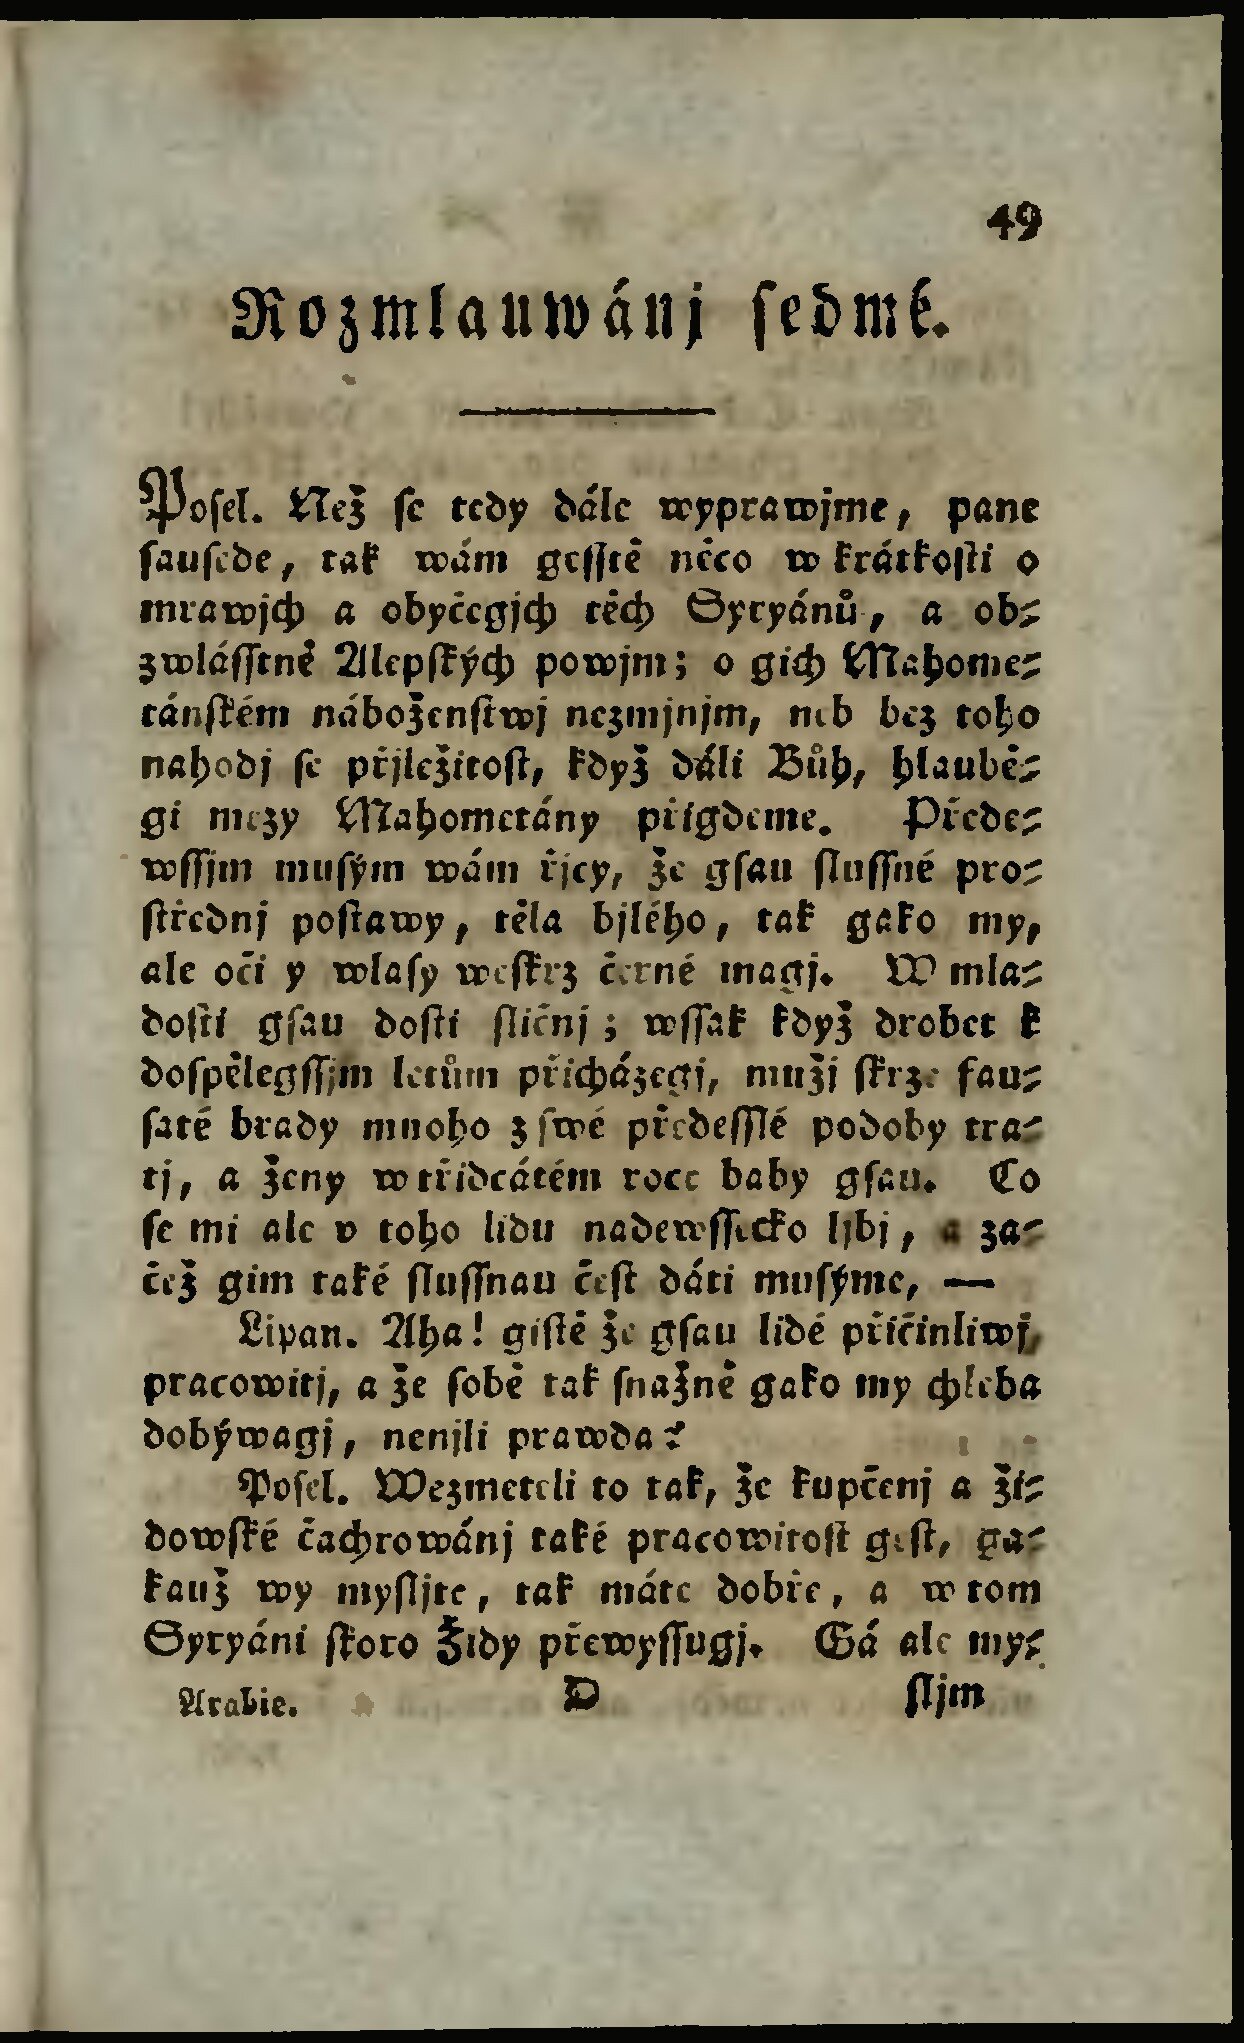 49
Rozmlauwánj sedmé.
Posel. Než se tedy dále wyprawjme, pane
sausede, tak wám gesstě něco w krátkosti o
mrawjch a obyčegjch těch Syryánů, a ob⸗
zwlásstně Alepských powjm; o gich Mahome⸗
tánském náboženstwj nezmjnjm, neb bez toho
nahodj se přjležitost, když dáli Bůh, hlaubě⸗
gi mezy Mahometány přigdeme. Přede⸗
wssjm musým wám řjcy, že gsau slussné pro⸗
střednj postawy, těla bjlého, tak gako my,
ale oči y wlasy weskrz černé magj. W mla⸗
dosti gsau dosti sličnj; wssak když drobet k
dospělegssjm letům přicházegj, mužj skrze fau⸗
saté brady mnoho z swé předesslé podoby tra⸗
tj, a ženy w třidcátém roce baby gsau. Co
se mi ale v toho lidu nadewssecko ljbj, a za⸗
čež gim také slussnau čest dáti musýme, —
Lipan. Aha! gistě že gsau lidé přičinliwj,
pracowitj, a že sobě tak snažně gako my chleba
dobýwagj, nenjli prawda?
Posel. Wezmeteli to tak, že kupčenj a ži⸗
dowské čachrowánj také pracowitost gest, ga⸗
kauž wy mysljte, tak máte dobře, a w tom
Syryáni skoro Židy přewyssugj. Gá ale my⸗
Arabie. D sljm